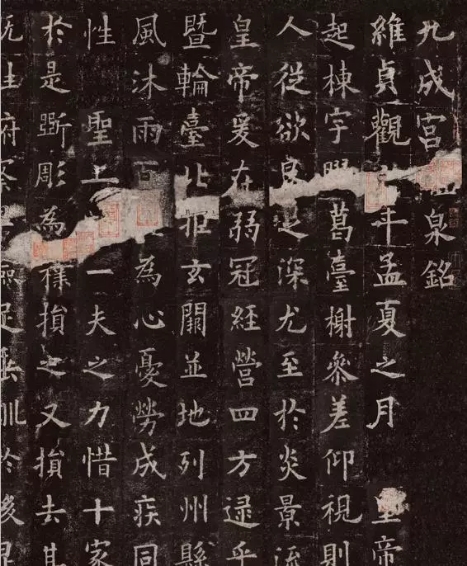 九成宮泉銘
維貞觀年孟夏之月 皇帝
起棟宇葛臺榭參差仰視則
人從欲良足深尤至於炎景流
皇帝爰在弱冠經營四方逮乎
暨輪臺北拒玄闕並地列州縣
風沐雨百為心憂勞成疾同
性 聖上一夫之力惜十家
於是斲彫為樸損之又損去其
既往府察儉足於後昆